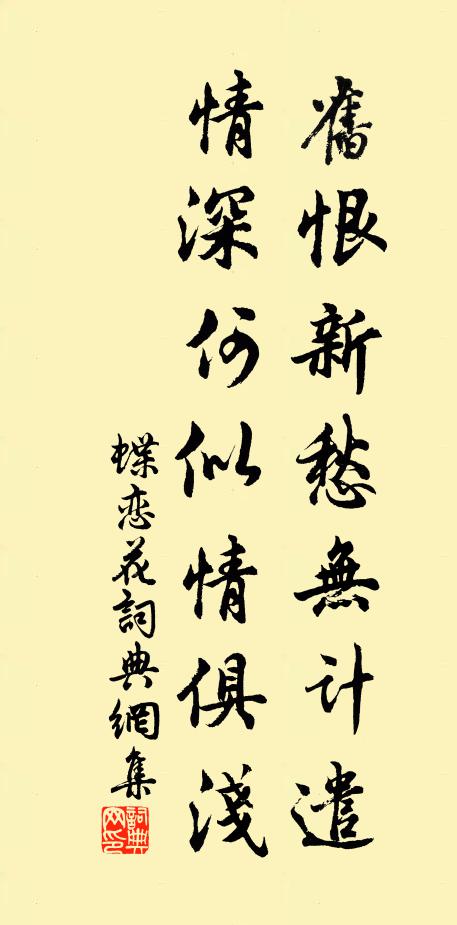 舊恨新愁無計遣
情深何似情俱淺
蝶恋花詞典網集
詞典网印